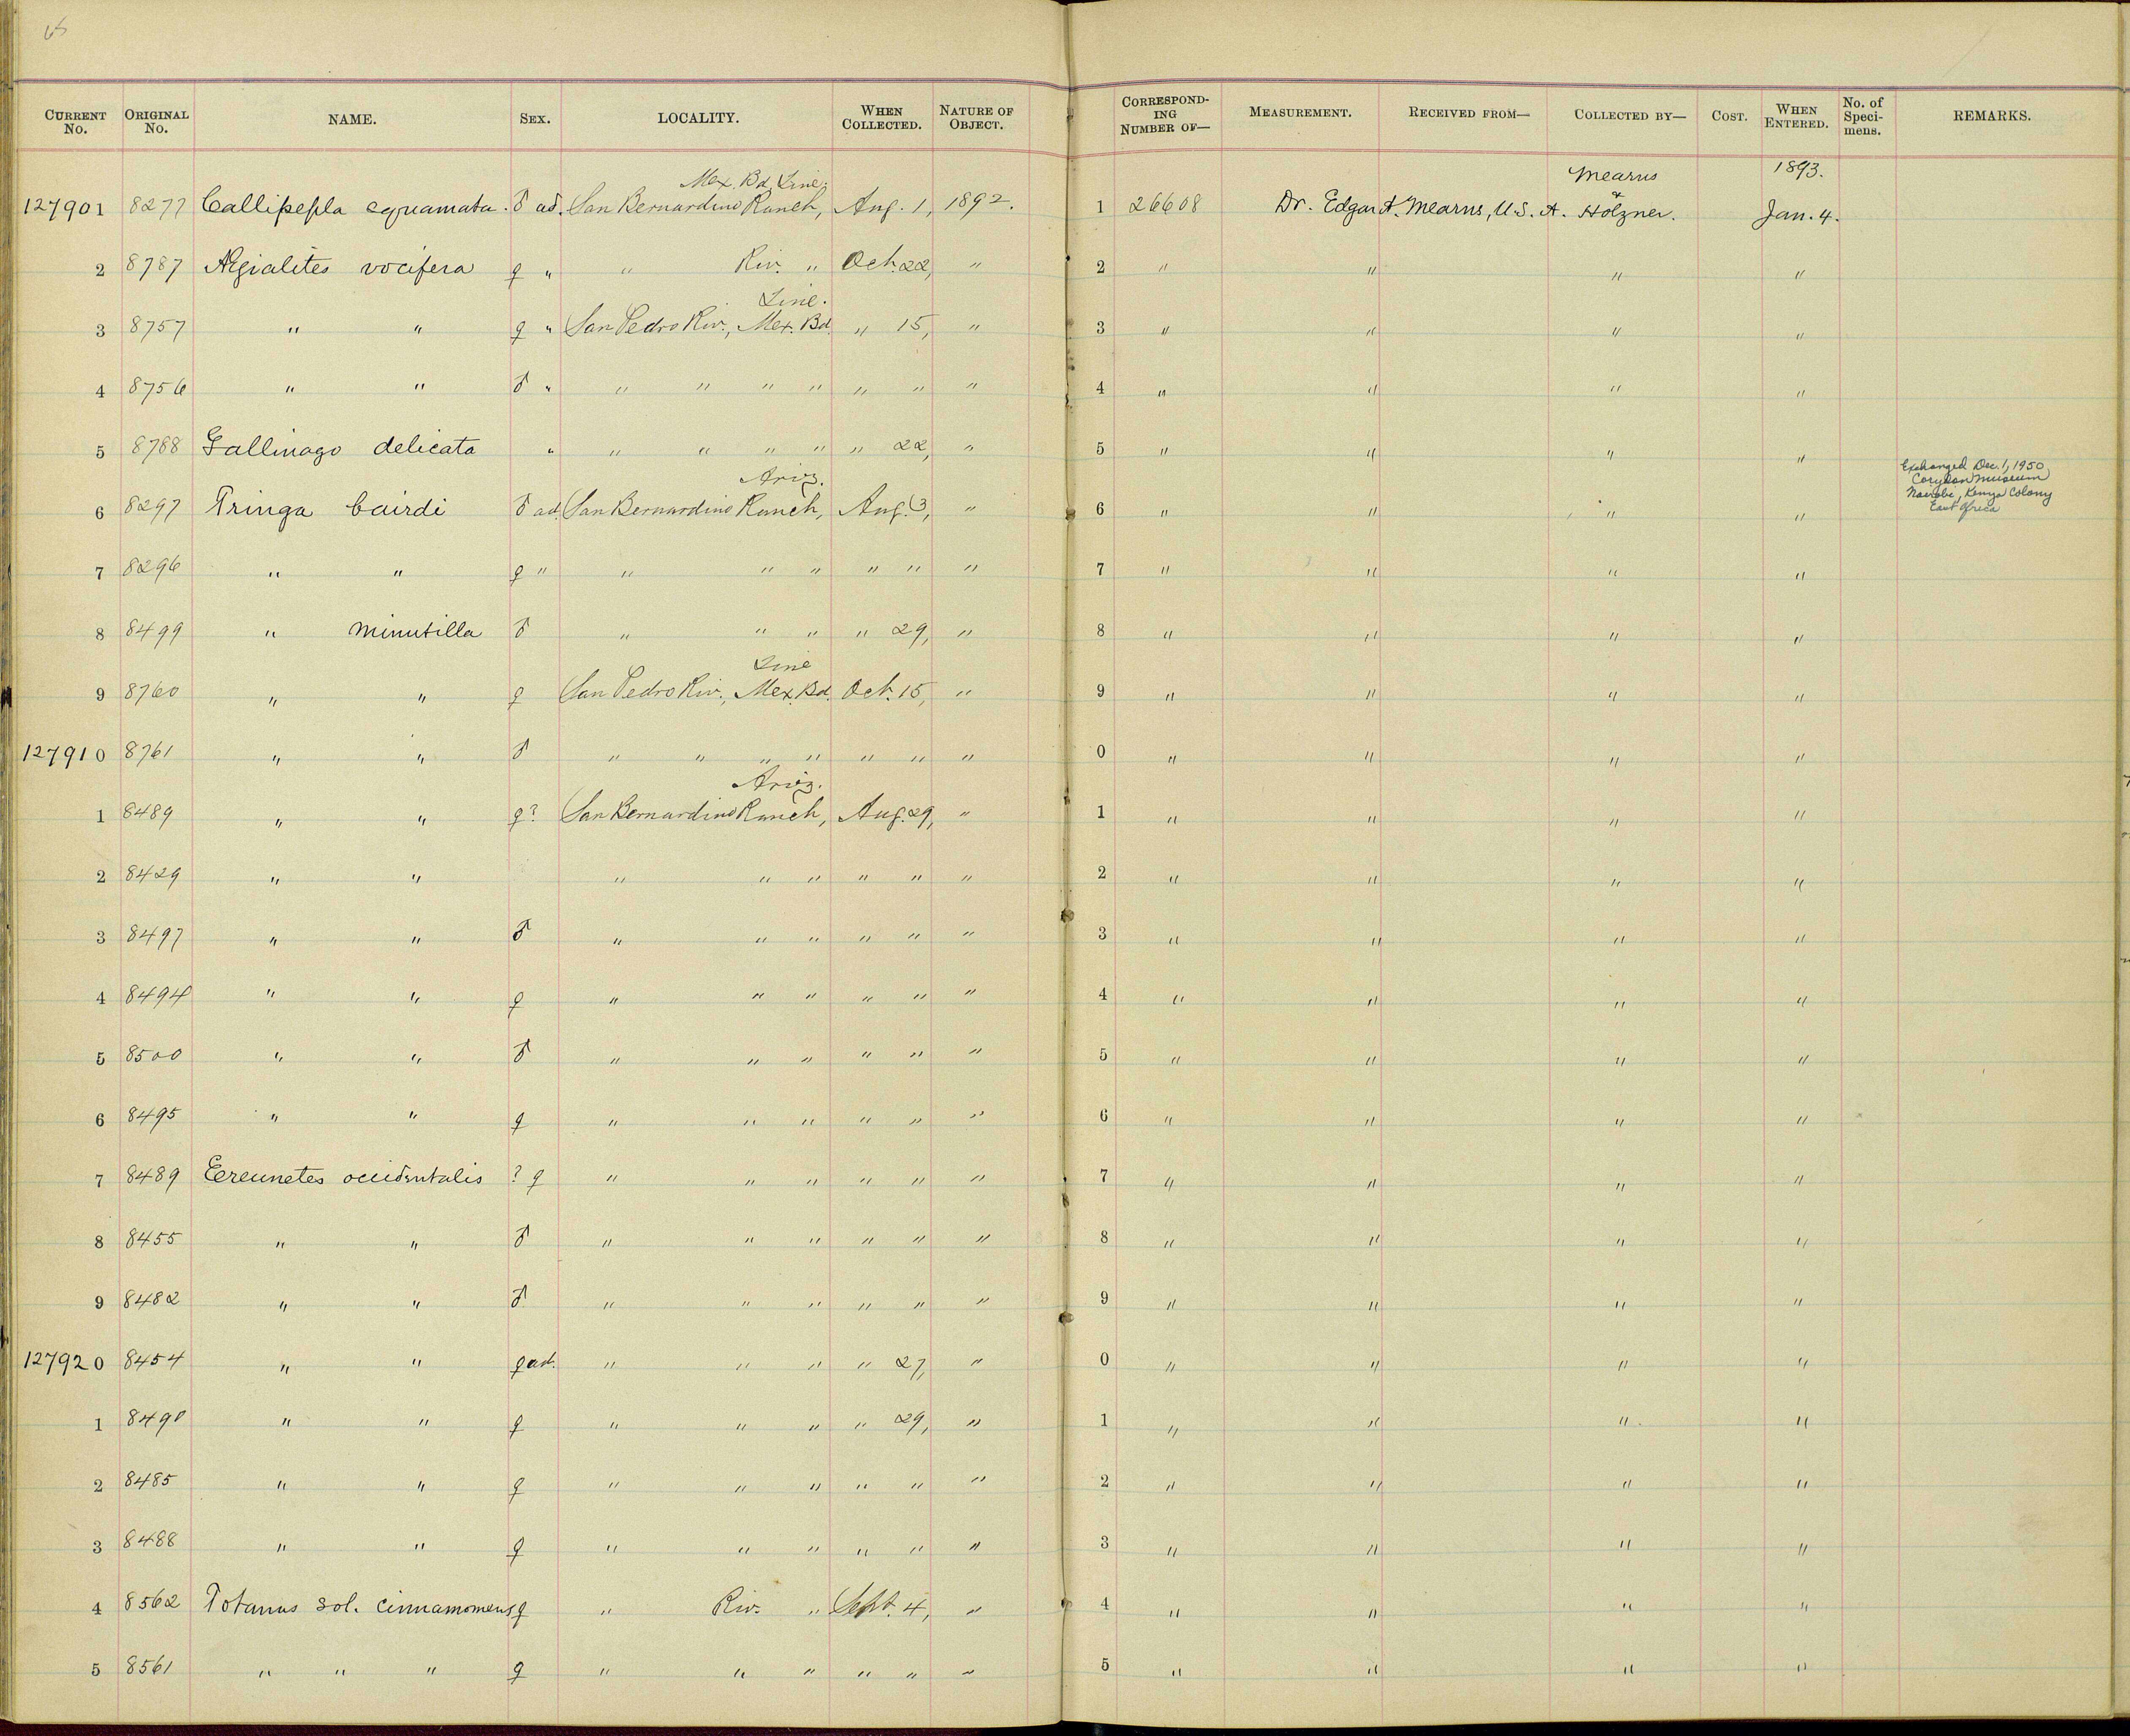 65
CURRENT No. ORIGINAL No. NAME. SEX. LOCALITY. WHEN COLLECTED. NATURE OF OBJECT. CORRESPONDING NUMBER OF— MEASUREMENT. RECEIVED FROM— COLLECTED BY— COST. WHEN ENTERED. No. of Specimens. REMARKS.
Mex. Bd. Line; Mearns 1893.
127901 8277 Callipepla squamata. ♂ ad. San Bernardino Ranch, Aug. 1, 1892. 1 26608 Dr. Edgar A. Mearns, U.S.A. & Holzner. Jan. 4.
2 8787 Ægialites vocifera ♀ " " Riv. " Oct. 22, " 2 " " " "
Line.
3 8757 " " ♀ " San Pedro Riv., Mex. Bd. " 15, " 3 " " " "
4 8756 " " ♂ " " " " " " " " 4 " " " "
5 8788 Gallinago delicata " " " " " " 22, " 5 " " " "
Ariz. Exchanged Dec. 1, 1950
Coryndon Museum
Nairobi, Kenya Colony
East Africa
6 8297 Tringa bairdi ♂ ad. San Bernardino Ranch, Aug. 3, " 6 " " " "
7 8296 " " ♀ " " " " " " " 7 " " " "
8 8499 " minutilla ♂ " " " " 29, " 8 " " " "
Line
9 8760 " " ♀ San Pedro Riv., Mex. Bd. Oct. 15, " 9 " " " "
127910 8761 " " ♂ " " " " " " " 0 " " " "
Ariz.
1 8489 " " ♀? San Bernardino Ranch, Aug. 29, " 1 " " " "
2 8429 " " " " " " " " 2 " " " "
3 8497 " " ♂ " " " " " " 3 " " " "
4 8494 " " ♀ " " " " " " 4 " " " "
5 8500 " " ♂ " " " " " " 5 " " " "
6 8495 " " ♀ " " " " " " 6 " " " "
7 8489 Eereunetes occidentalis ? ♀ " " " " " " 7 " " " "
8 8455 " " ♂ " " " " " " 8 " " " "
9 8482 " " ♂ " " " " " " 9 " " " "
127920 8454 " " ♀ ad. " " " " 27, " 0 " " " "
1 8490 " " ♀ " " " " 29, " 1 " " " "
2 8485 " " ♀ " " " " " " 2 " " " "
3 8488 " " ♀ " " " " " " 3 " " " "
4 8562 Totanus sol. cinnamomeus ♀ " Riv. " Sept. 4, " 4 " " " "
5 8561 " " " ♀ " " " " " " 5 " " " "